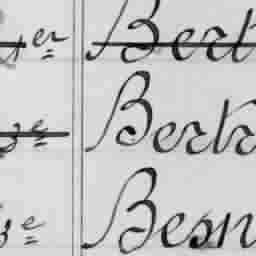 1er Bert
3e Bertr
3e Besn